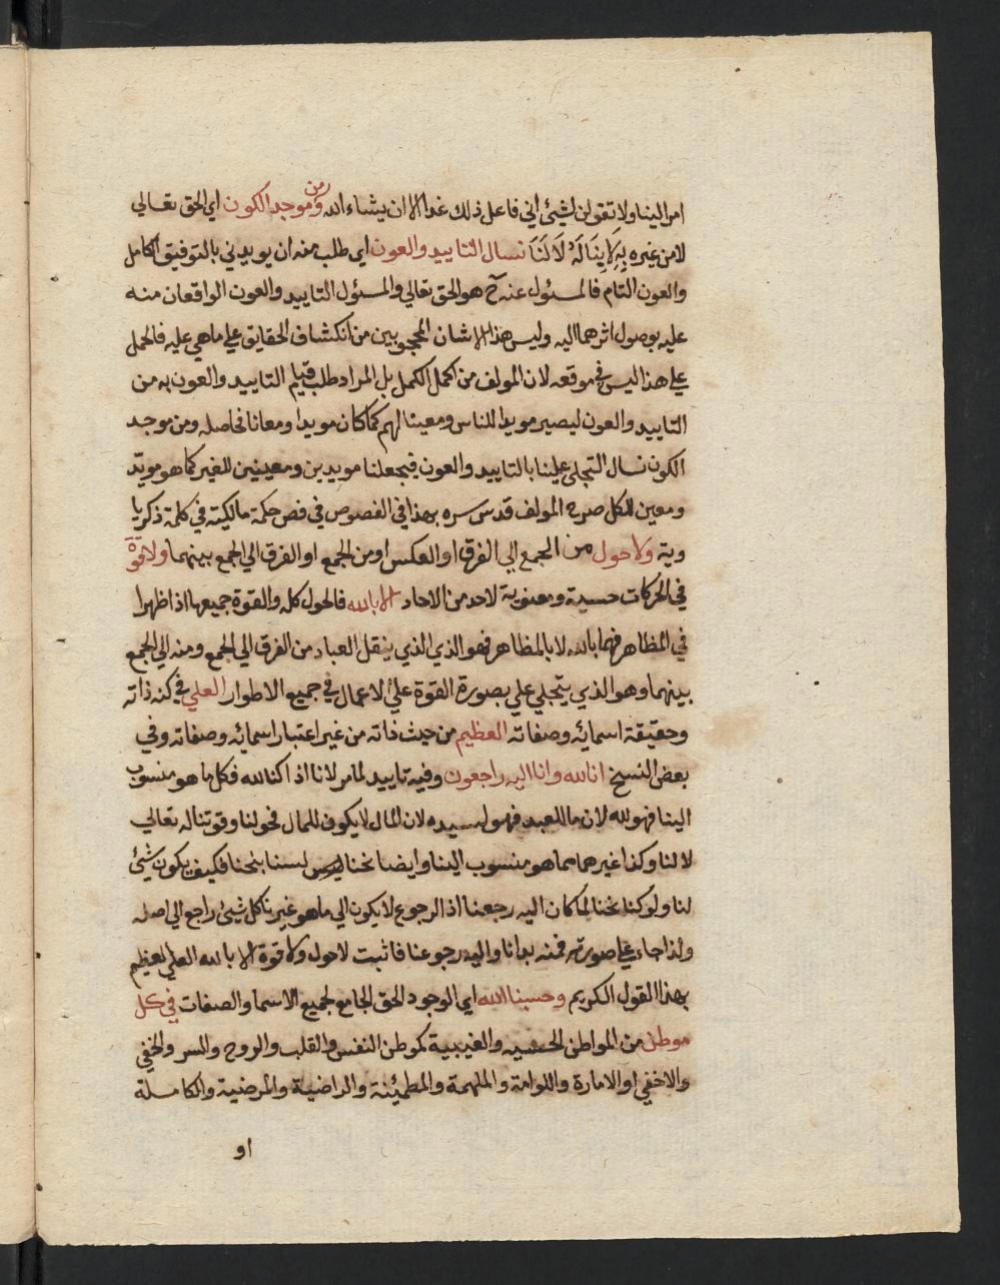 امر الينا ولا تقولن لشيئ اني فاعل ذلك غدا الا ان يشاء الله ومن موجد الكون اي الحق تعالي
لا من غيره به لا ينا له لا لنا نسال التاييد والعون اي طلب منه ان يويدني بالتوفيق الكامل
والعون التام فالمسئول عنه ح هو الحق تعالي والمسئول التاييد والعون الواقعان منه
عليه بوصول اثرهما اليه وليس هذا الا شان المحجوبين من انكشاف الحقايق علي ماهي عليه فالحمل
علي هذا ليس في موقعه لان المولف من اكمل الكمل بل المراد طلب قيام التاييد والعون به من
التاييد والعون ليصير مويدا للناس ومعينا لهم كما كان مويدا ومعانا فحاصله ومن موجد
الكون نسال التجلي علينا بالتاييد والعون فيجعلنا مويدين ومعينين للغير كما هو مويد
ومعين للكل صرح المولف قدس سره بهذا في الفصوص في فص حكمة مالكية في كلمة ذكريا
وية ولا حول من الجمع الي الفرق او العكس او من الجمع او الفرق الي الجمع بينهما ولا قوة
في الحركات حسية ومعنوية لاحد من الاحاد الا بالله فالحول كله والقوة جميعها اذا ظهرا
في المظاهر فهما بالله لا بالمظاهر فهو الذي الذي ينقل العباد من الفرق الي الجمع ومنه الي الجمع
بينهما وهو الذي يتجلي علي بصورة القوة علي الاعمال في جميع الاطوار العلي في كنه ذاته
وحقيقة اسمائه وصفاته العظيم من حيث ذاته من غير اعتبار اسمائه وصفاته وفي
بعض النسخ انا لله وانا اليه راجعون وفيه تاييد لما مر لانا اذا كنا لله فكل ما هو منسوب
الينا فهو لله لان ما للعبد فهو لسيده لان المال لا يكون للمال فحولنا وقوتنا له تعالي
لا لنا وكذا غيرهما مما هو منسوب الينا وايضا نحن لسنا بنحنا فكيف يكون شيئ
لنا ولو كنا نحنا لما كان اليه رجعنا اذ الرجوع لا يكون الي ما هو غيرنا كل شيئ راجع الي اصله
ولذا جاء علي صورته فمنه بدانا واليه رجوعنا فاثبت لا حول ولا قوة الا بالله العلي العظيم
بهذا القول الكريم وحسبنا الله اي الوجود الحق الجامع لجميع الاسما والصفات في كل
موطن من المواطن الحسيه والغيبية كموطن النفس والقلب والروح والسر والخفي
والاخفي او الامارة واللوامة والملهمة والمطمئنة والراضية والمرضية والكاملة
او